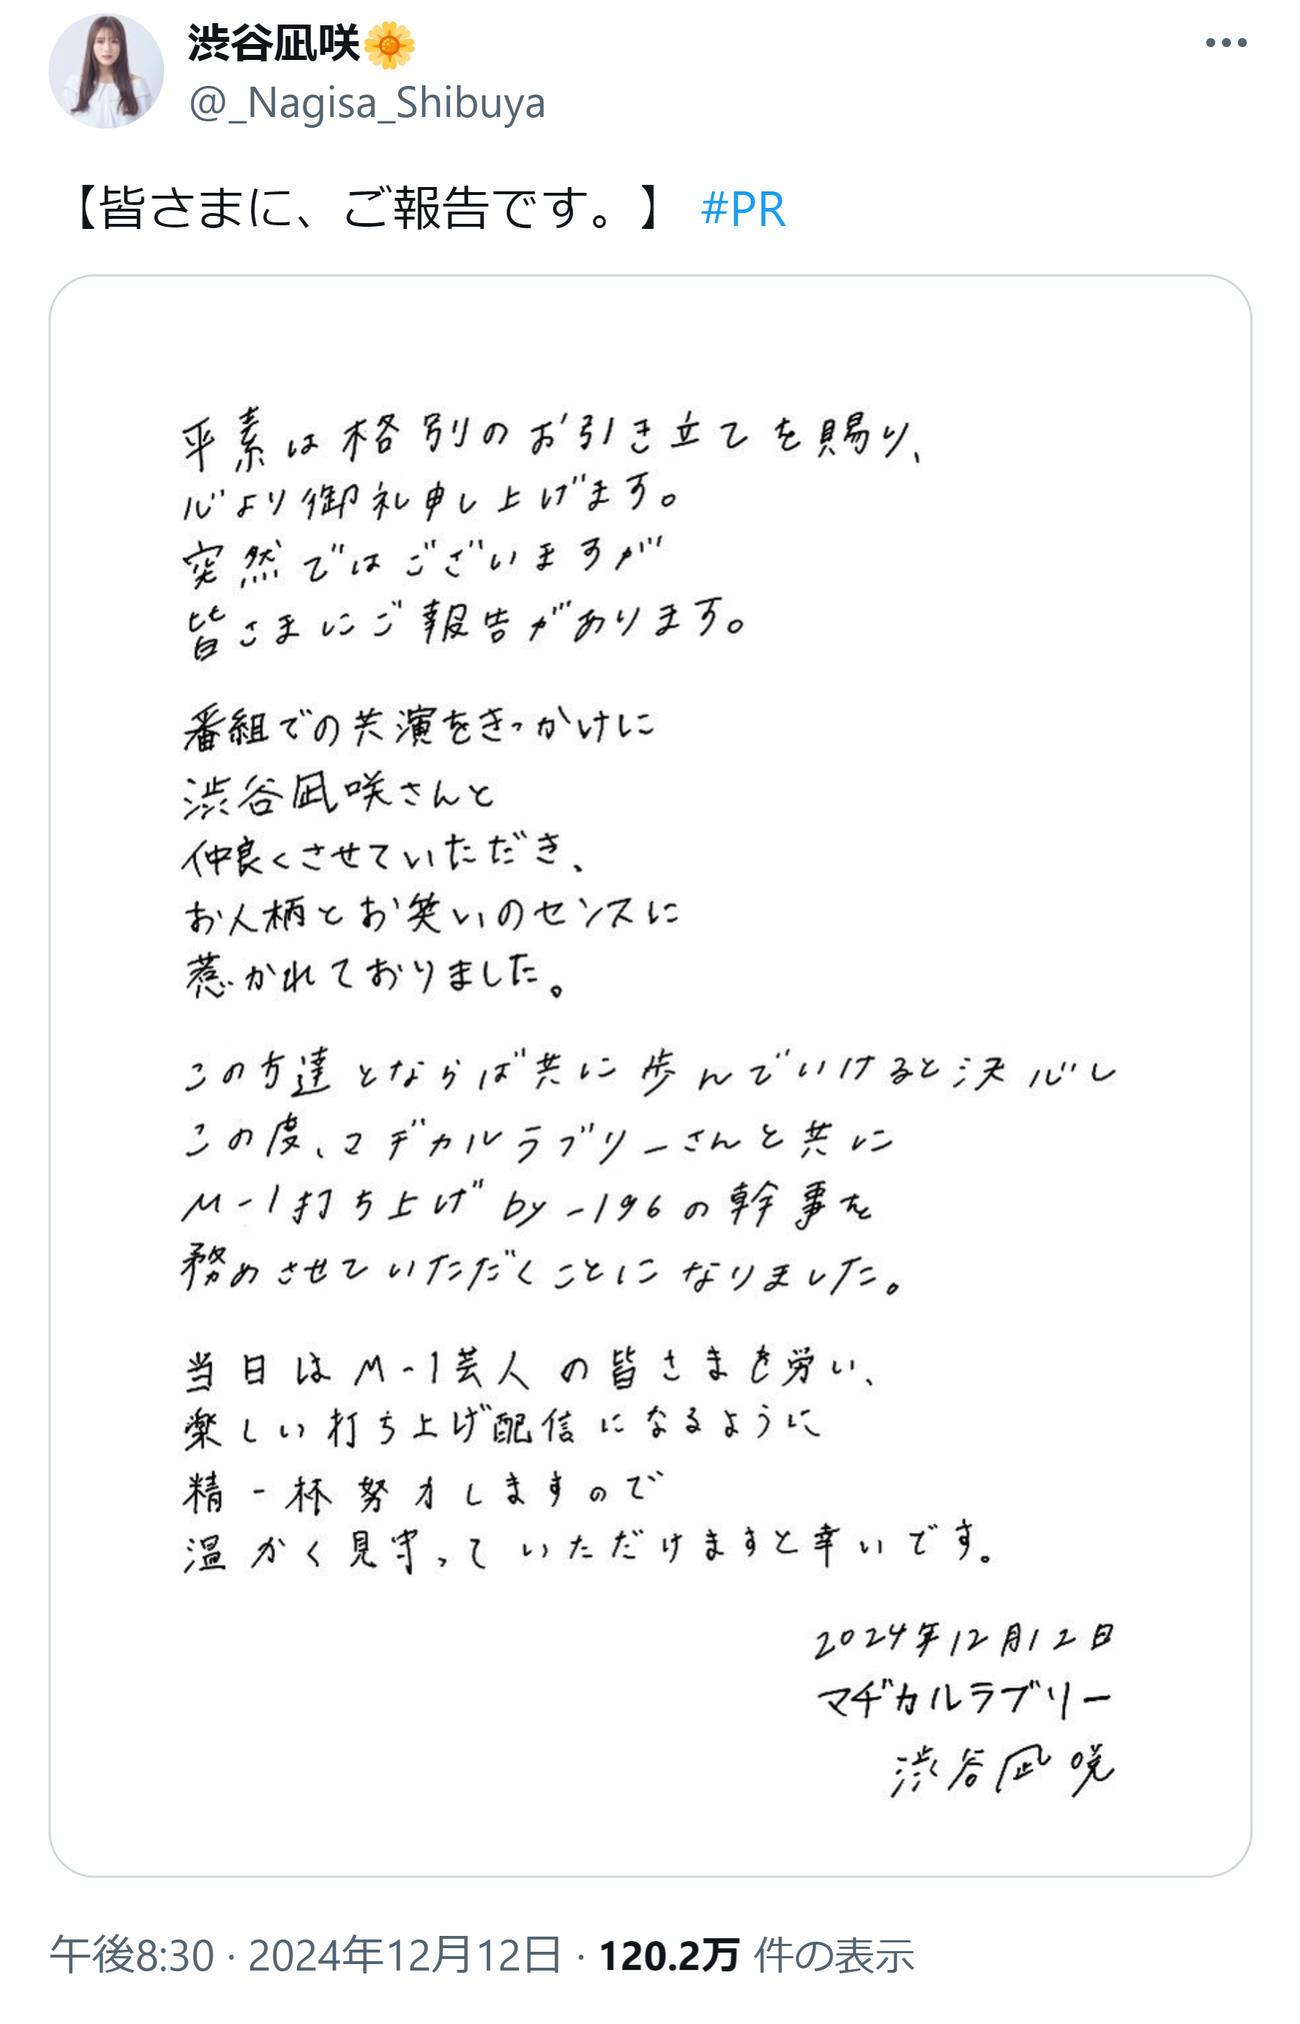 渋谷凪咲🌼
@_Nagisa_Shibuya
【皆さまに、ご報告です。】 #PR
平素は格別のお引き立てを賜り、
心より御礼申し上げます。
突然ではございますが
皆さまにご報告があります。
番組での共演をきっかけに
渋谷凪咲さんと
仲良くさせていただき、
お人柄とお笑いのセンスに
惹かれておりました。
この方達とならば共に歩んでいけると決心し
この度、マヂカルラブリーさんと共に
M-1打ち上げ by -196の幹事を
務めさせていただくことになりました。
当日はM-1芸人の皆さまを労い、
楽しい打ち上げ配信になるように
精一杯努力しますので
温かく見守っていただけますと幸いです。
2024年12月12日
マヂカルラブリー
渋谷凪咲
午後8:30 · 2024年12月12日 · 120.2万 件の表示